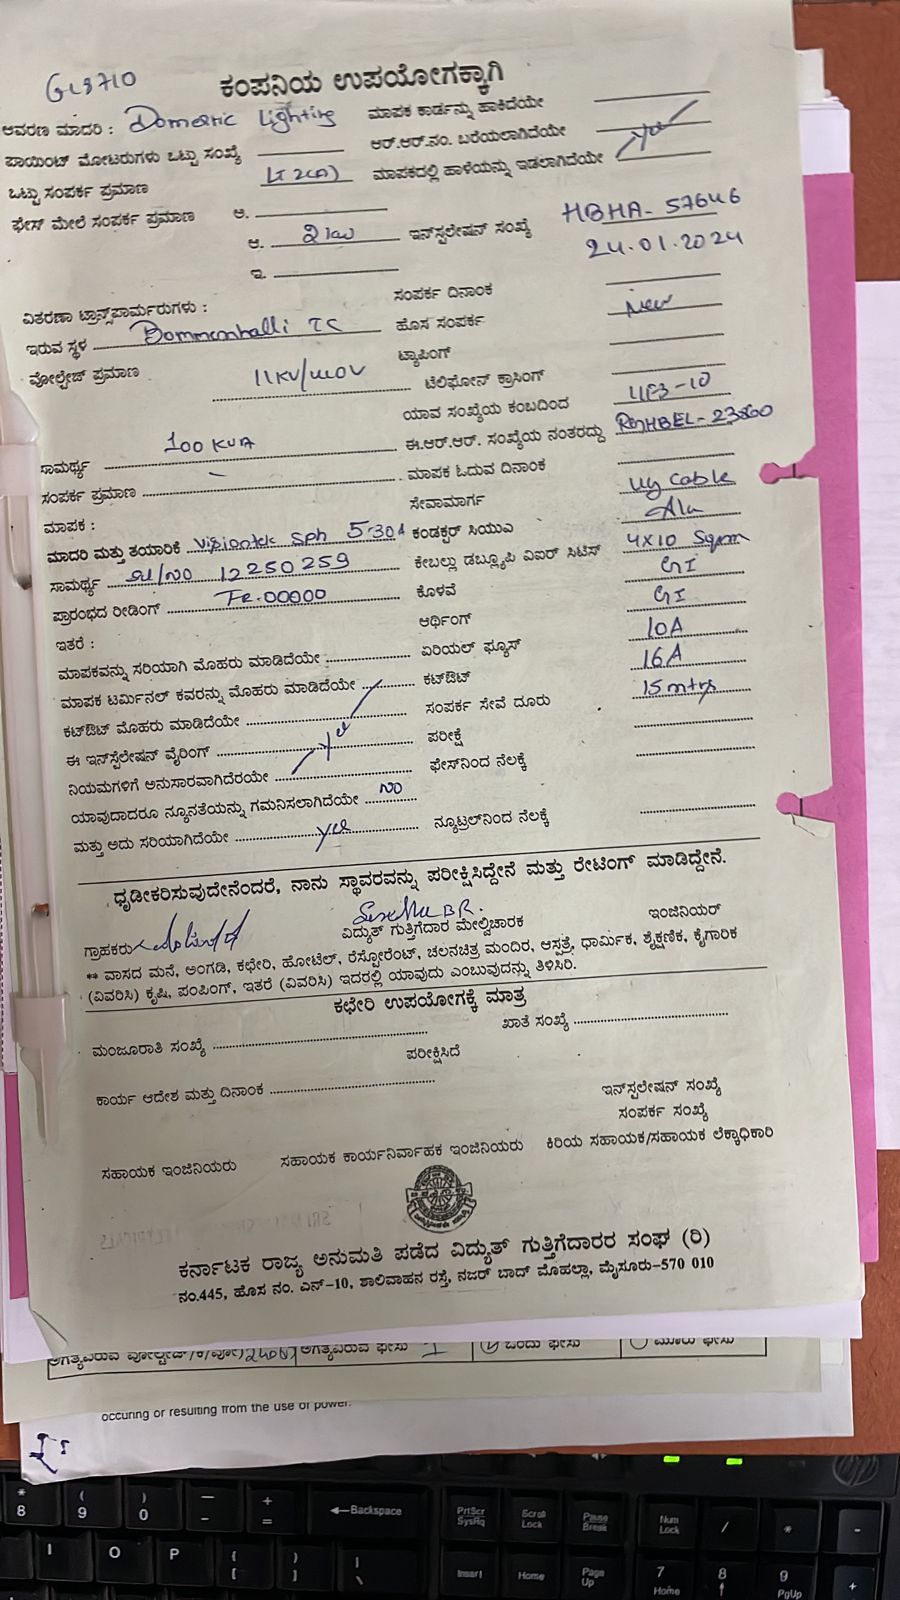 GL8710
ಕಂಪನಿಯ ಉಪಯೋಗಕ್ಕಾಗಿ
ಆವರಣ ಮಾದರಿ : Domestic Lighting ಮಾಪಕ ಕಾರ್ಡನ್ನು ಹಾಕಿದೆಯೇ
ಪಾಯಿಂಟ್ ಮೋಟರುಗಳು ಒಟ್ಟು ಸಂಖ್ಯೆ ಆರ್.ಆರ್.ನಂ. ಬರೆಯಲಾಗಿದೆಯೇ yes
ಒಟ್ಟು ಸಂಪರ್ಕ ಪ್ರಮಾಣ LT 2(A) ಮಾಪಕದಲ್ಲಿ ಹಾಳೆಯನ್ನು ಇಡಲಾಗಿದೆಯೇ
ಫೇಸ್ ಮೇಲೆ ಸಂಪರ್ಕ ಪ್ರಮಾಣ ಅ.
ಆ. 2 kw ಇನ್‌ಸ್ಟಲೇಷನ್ ಸಂಖ್ಯೆ HBHA-57646
24.01.2024
ಇ.
ವಿತರಣಾ ಟ್ರಾನ್ಸ್‌ಪಾರ್ಮರುಗಳು : ಸಂಪರ್ಕ ದಿನಾಂಕ
ಇರುವ ಸ್ಥಳ Bommenhalli TC ಹೊಸ ಸಂಪರ್ಕ New
ವೋಲ್ಟೇಜ್ ಪ್ರಮಾಣ 11KV/440V ಟ್ಯಾಪಿಂಗ್
ಟೆಲಿಫೋನ್ ಕ್ರಾಸಿಂಗ್
ಯಾವ ಸಂಖ್ಯೆಯ ಕಂಬದಿಂದ
ಸಾಮರ್ಥ್ಯ 100 KVA ಈ.ಆರ್.ಆರ್. ಸಂಖ್ಯೆಯ ನಂತರದ್ದು HBEL-23860
ಸಂಪರ್ಕ ಪ್ರಮಾಣ – ಮಾಪಕ ಓದುವ ದಿನಾಂಕ
ಮಾಪಕ : ಸೇವಾಮಾರ್ಗ ug Cable
ಮಾದರಿ ಮತ್ತು ತಯಾರಿಕೆ Visiontek Sph 5-30A ಕಂಡಕ್ಟರ್ ಸಿಯುವಿ Alu
ಸಾಮರ್ಥ್ಯ Sl/No 12250259 ಕೇಬಲ್ಲು ಡಬ್ಲ್ಯೂಪಿ ವಿಐಆರ್ ಸಿಟಿಸ್ 4x10 Sqmm
ಪ್ರಾರಂಭದ ರೀಡಿಂಗ್ FR.00000 ಕೊಳವೆ GI
ಇತರೆ : ಆರ್ಥಿಂಗ್ GI
ಮಾಪಕವನ್ನು ಸರಿಯಾಗಿ ಮೊಹರು ಮಾಡಿದೆಯೇ ಏರಿಯಲ್ ಫ್ಯೂಸ್ 10A
ಮಾಪಕ ಟರ್ಮಿನಲ್ ಕವರನ್ನು ಮೊಹರು ಮಾಡಿದೆಯೇ ಕಟ್‌ಔಟ್ 16A
ಕಟ್‌ಔಟ್ ಮೊಹರು ಮಾಡಿದೆಯೇ ಸಂಪರ್ಕ ಸೇವೆ ದೂರು 15 mtrs
ಈ ಇನ್‌ಸ್ಟೆಲೇಷನ್ ವೈರಿಂಗ್ yes ಪರೀಕ್ಷೆ
ನಿಯಮಗಳಿಗೆ ಅನುಸಾರವಾಗಿದೆರಯೇ ಫೇಸ್‌ನಿಂದ ನೆಲಕ್ಕೆ
ಯಾವುದಾದರೂ ನ್ಯೂನತೆಯನ್ನು ಗಮನಿಸಲಾಗಿದೆಯೇ no
ಮತ್ತು ಅದು ಸರಿಯಾಗಿದೆಯೇ yes ನ್ಯೂಟ್ರಲ್‌ನಿಂದ ನೆಲಕ್ಕೆ
ಧೃಡೀಕರಿಸುವುದೇನೆಂದರೆ, ನಾನು ಸ್ಥಾವರವನ್ನು ಪರೀಕ್ಷಿಸಿದ್ದೇನೆ ಮತ್ತು ರೇಟಿಂಗ್ ಮಾಡಿದ್ದೇನೆ.
ಗ್ರಾಹಕರು ವಿದ್ಯುತ್ ಗುತ್ತಿಗೆದಾರ ಮೇಲ್ವಿಚಾರಕ ಇಂಜಿನಿಯರ್
** ವಾಸದ ಮನೆ, ಅಂಗಡಿ, ಕಛೇರಿ, ಹೋಟೆಲ್, ರೆಸ್ಟೋರೆಂಟ್, ಚಲನಚಿತ್ರ ಮಂದಿರ, ಆಸ್ಪತ್ರೆ, ಧಾರ್ಮಿಕ, ಶೈಕ್ಷಣಿಕ, ಕೈಗಾರಿಕ
(ವಿವರಿಸಿ) ಕೃಷಿ, ಪಂಪಿಂಗ್, ಇತರೆ (ವಿವರಿಸಿ) ಇದರಲ್ಲಿ ಯಾವುದು ಎಂಬುವುದನ್ನು ತಿಳಿಸಿರಿ.
ಕಛೇರಿ ಉಪಯೋಗಕ್ಕೆ ಮಾತ್ರ
ಮಂಜೂರಾತಿ ಸಂಖ್ಯೆ ಖಾತೆ ಸಂಖ್ಯೆ
ಪರೀಕ್ಷಿಸಿದೆ
ಕಾರ್ಯ ಆದೇಶ ಮತ್ತು ದಿನಾಂಕ ಇನ್‌ಸ್ಟಲೇಷನ್ ಸಂಖ್ಯೆ
ಸಂಪರ್ಕ ಸಂಖ್ಯೆ
ಸಹಾಯಕ ಇಂಜಿನಿಯರು ಸಹಾಯಕ ಕಾರ್ಯನಿರ್ವಾಹಕ ಇಂಜಿನಿಯರು ಕಿರಿಯ ಸಹಾಯಕ/ಸಹಾಯಕ ಲೆಕ್ಕಾಧಿಕಾರಿ
ಕರ್ನಾಟಕ ರಾಜ್ಯ ಅನುಮತಿ ಪಡೆದ ವಿದ್ಯುತ್ ಗುತ್ತಿಗೆದಾರರ ಸಂಘ (ರಿ)
ನಂ.445, ಹೊಸ ನಂ. ಎನ್-10, ಶಾಲಿವಾಹನ ರಸ್ತೆ, ನಜರ್ ಬಾದ್ ಮೊಹಲ್ಲಾ, ಮೈಸೂರು-570 010
ಅಗತ್ಯವಿರುವ ಫೇಸು ಒಂದು ಫೇಸು ಮೂರು ಫೇಸು
occuring or resulting from the use of power.
* 8 ( 9 ) 0 – - + = Backspace PrtScr SysRq Scroll Lock Pause Break Num Lock / * -
I O P { [ } ] | \ Insert Home Page Up 7 Home 8 9 PgUp +